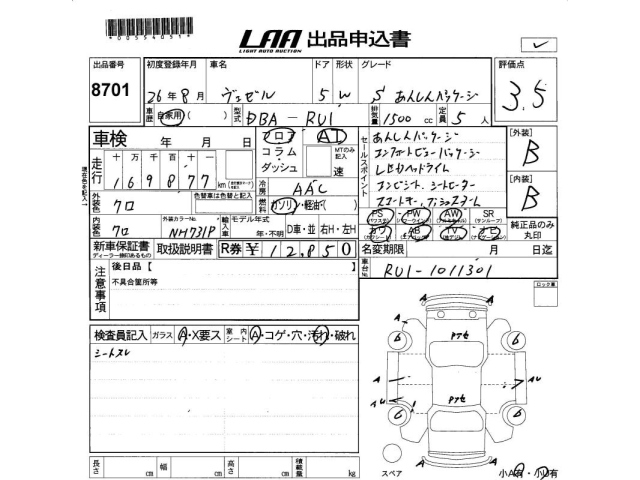 *0055405 1*
LAA 出品申込書
LIGHT AUTO AUCTION
出品番号 初度登録年月 車名 ドア 形状 グレード 評価点
8701 26年8月 ヴェゼル 5 W S あんしんパッケージ 3.5
車歴 自家用( ) 型式 DBA-RU1 排気量 1500cc 定員 5人
車検 年 月 日 フロア AT セールスポイント あんしんパッケージ [外装] B
コラム・ダッシュ MTのみ記入 速 コンフォートビューパッケージ
走行 十万千百十一 169877km 冷房 AAC LEDヘッドライト [内装] B
外装色 クロ 色替車は色替と記入 燃料 ガソリン・軽油( ) コンビシート シートヒーター
スマートキー プッシュスタート
内装色 クロ 外装カラーNo. NH731P 輸入車 モデル年式 年・不明 D車・並 右H・左H
PS PW AW SR 純正品のみ丸印
カワ AB TV ナビ
新車保証書 取扱説明書 R券 ¥12,850 名変期限 月 日迄
ディーラー捺印あるもの
車台No. RU1-1011301
注意事項 後日品【 】
不具合箇所等
ロック車
検査員記入 ガラス A・X要ス 室内シート A・コゲ・穴・汚れ・破れ
シートスレ
A A
6 6
アクセ
A A AU
AU アクセ
6 6
A A
スペア 小A有・小U有
長さ cm 幅 cm 高さ cm 積載量 kg